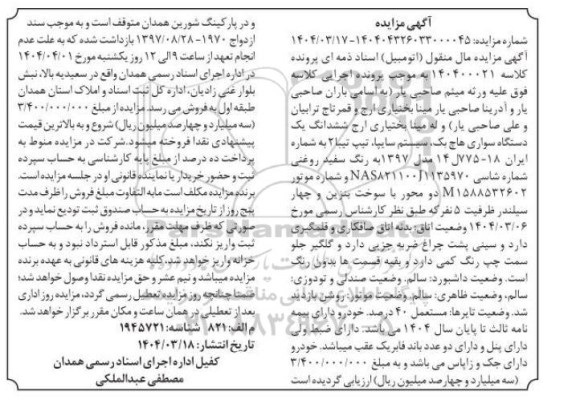 آگهی مزایده
شماره مزایده: ۱۴۰۴۰۴۳۲۶۰۳۳۰۰۰۰۴۵-۱۴۰۴/۰۳/۱۷
آگهی مزایده مال منقول (اتومبیل) اسناد ذمه ای پرونده
کلاسه ۱۴۰۴۰۰۰۲۱ به موجب پرونده اجرایی کلاسه
فوق علیه ورثه میثم صاحبی یار (به اسامی باران صاحبی
یار و آدرینا صاحبی یار مبنا بختیاری ارج و قمر تاج ترابیان
و علی صاحبی یار) و له مینا بختیاری ارج ششدانگ یک
دستگاه سواری هاچ بک، سیستم سایپا، تیپ تیبا۲ به شماره
ایران ۱۸-۷۷۵ل۱۴ مدل ۱۳۹۷به رنگ سفید روغنی
شماره شاسی NAS۸۲۱۱۰۰J۱۱۳۵۹۷۰ و شماره موتور
M۱۵۸۸۵۳۲۶۰۲ دو محور با سوخت بنزین و چهار
سیلندر ظرفیت ۵ نفر که طبق نظر کارشناس رسمی مورخ
۱۴۰۴/۰۳/۰۶ وضعیت اتاق: بدنه اتاق صافکاری و قلمگیری
دارد و سینی پشت چراغ ضربه جزیی دارد و گلگیر جلو
سمت چپ رنگ کمی دارد و بقیه قسمت ها بدون رنگ
است. وضعیت داشبورد: سالم. وضعیت صندلی و تودوزی:
سالم، وضعیت ظاهری: سالم. وضعیت موتور: روشن بازدید
شد. وضعیت تایرها: مستعمل ۴۰ درصد. خودرو دارای بیمه
نامه ثالث تا پایان سال ۱۴۰۴ می باشد: دارای ضبط ولی
دارای پنل و دارای دو عدد باند فابریک عقب میباشد. خودرو
دارای جک و زاپاس می باشد و به مبلغ ۳/۴۰۰/۰۰۰/۰۰۰
(سه میلیارد و چهارصد میلیون ریال) ارزیابی گردیده است
و در پارکینگ شورین همدان متوقف است و به موجب سند
ازدواج ۱۹۷۰-۱۳۹۷/۰۸/۲۸ بازداشت شده که به علت عدم
انجام تعهد از ساعت ۹ الی ۱۲ روز یکشنبه مورخ ۱۴۰۴/۰۴/۰۱
در اداره اجرای اسناد رسمی همدان واقع در سعیدیه بالا، نبش
بلوار غنی زادیان، اداره کل ثبت اسناد و املاک استان همدان
طبقه اول به فروش می رسد. مزایده از مبلغ ۳/۴۰۰/۰۰۰/۰۰۰
(سه میلیارد و چهارصد میلیون ریال) شروع و به بالاترین قیمت
پیشنهادی نقدا فروخته میشود. شرکت در مزایده منوط به
پرداخت ده درصد از مبلغ پایه کارشناسی به حساب سپرده
ثبت و حضور خریدار یا نماینده قانونی او در جلسه مزایده است.
برنده مزایده مکلف است مابه التفاوت مبلغ فروش را ظرف مدت
پنج روز از تاریخ مزایده به حساب صندوق ثبت تودیع نماید و در
صورتی که ظرف مهلت مقرر، مانده فروش را به حساب سپرده
ثبت واریز نکند، مبلغ مذکور قابل استرداد نبود و به حساب
خزانه واریز خواهد شد. کلیه هزینه های قانونی به عهده برنده
مزایده میباشد و نیم عشر و حق مزایده نقدا وصول خواهد شد؛
ضمنا چنانچه روز مزایده تعطیل رسمی گردد، مزایده روز اداری
بعد از تعطیلی در همان ساعت و مکان مقرر برگزار خواهد شد.
م الف: ۸۲۱ شناسه: ۱۹۴۵۷۲۱
تاریخ انتشار: ۱۴۰۴/۰۳/۱۸
کفیل اداره اجرای اسناد رسمی همدان
مصطفی عبدالملکی